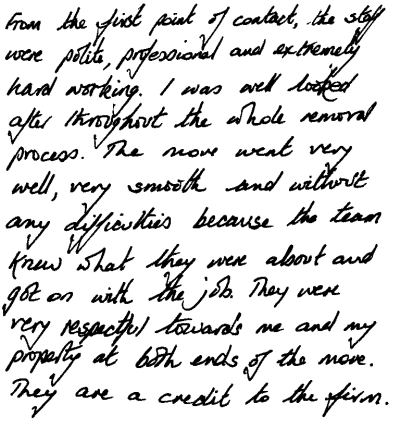 From the first point of contact, the staff
were polite, professional and extremely
hard working. I was well looked
after throughout the whole removal
process. The move went very
well, very smooth and without
any difficulties because the team
knew what they were about and
got on with the job. They were
very respectful towards me and my
property at both ends of the move.
They are a credit to the firm.